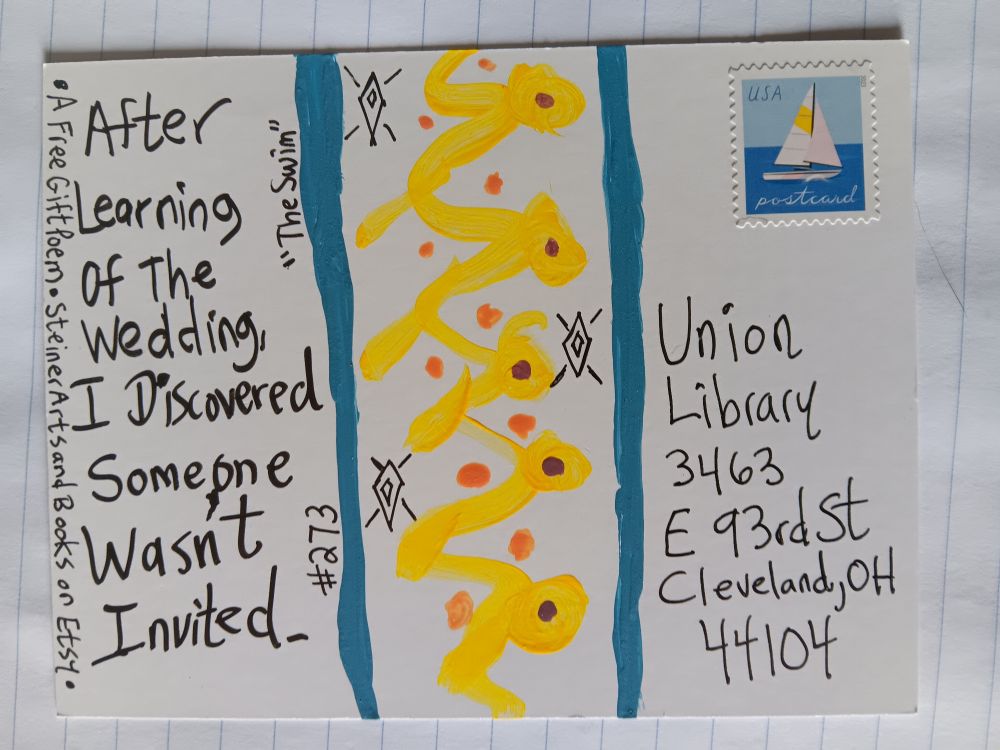 •A Free Gift Poem • Steiner Arts and Books on Etsy.•
After
Learning
Of The
Wedding,
I Discovered
Someone
Wasn't
Invited_
"The Swim"
#273
USA
2023
postcard
Union
Library
3463
E 93rd St
Cleveland, OH
44104